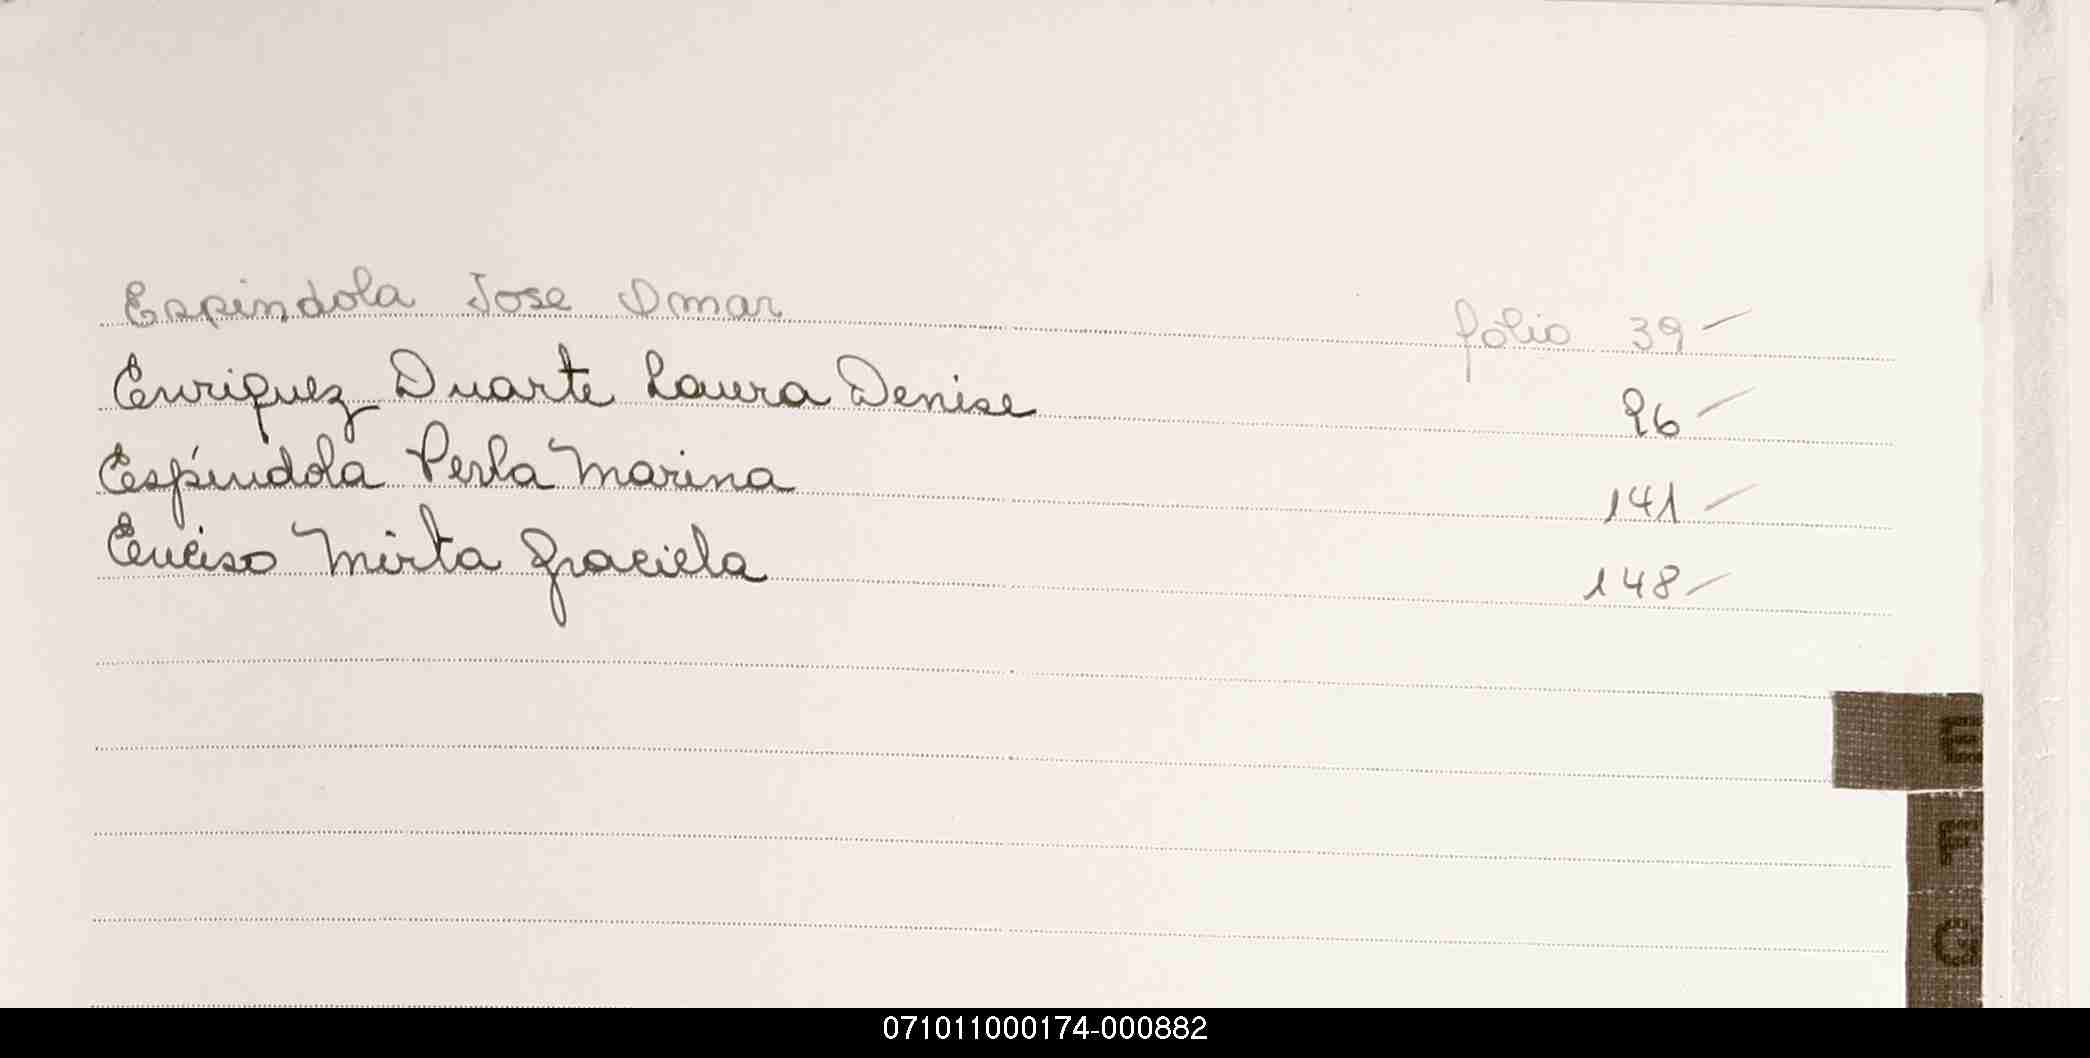 Espindola Jose Omar folio 39 -
Enriquez Duarte Laura Denise 96 -
Espíndola Perla Marina 141 -
Enciso Mirta Graciela 148 -
E
F
G
071011000174-000882